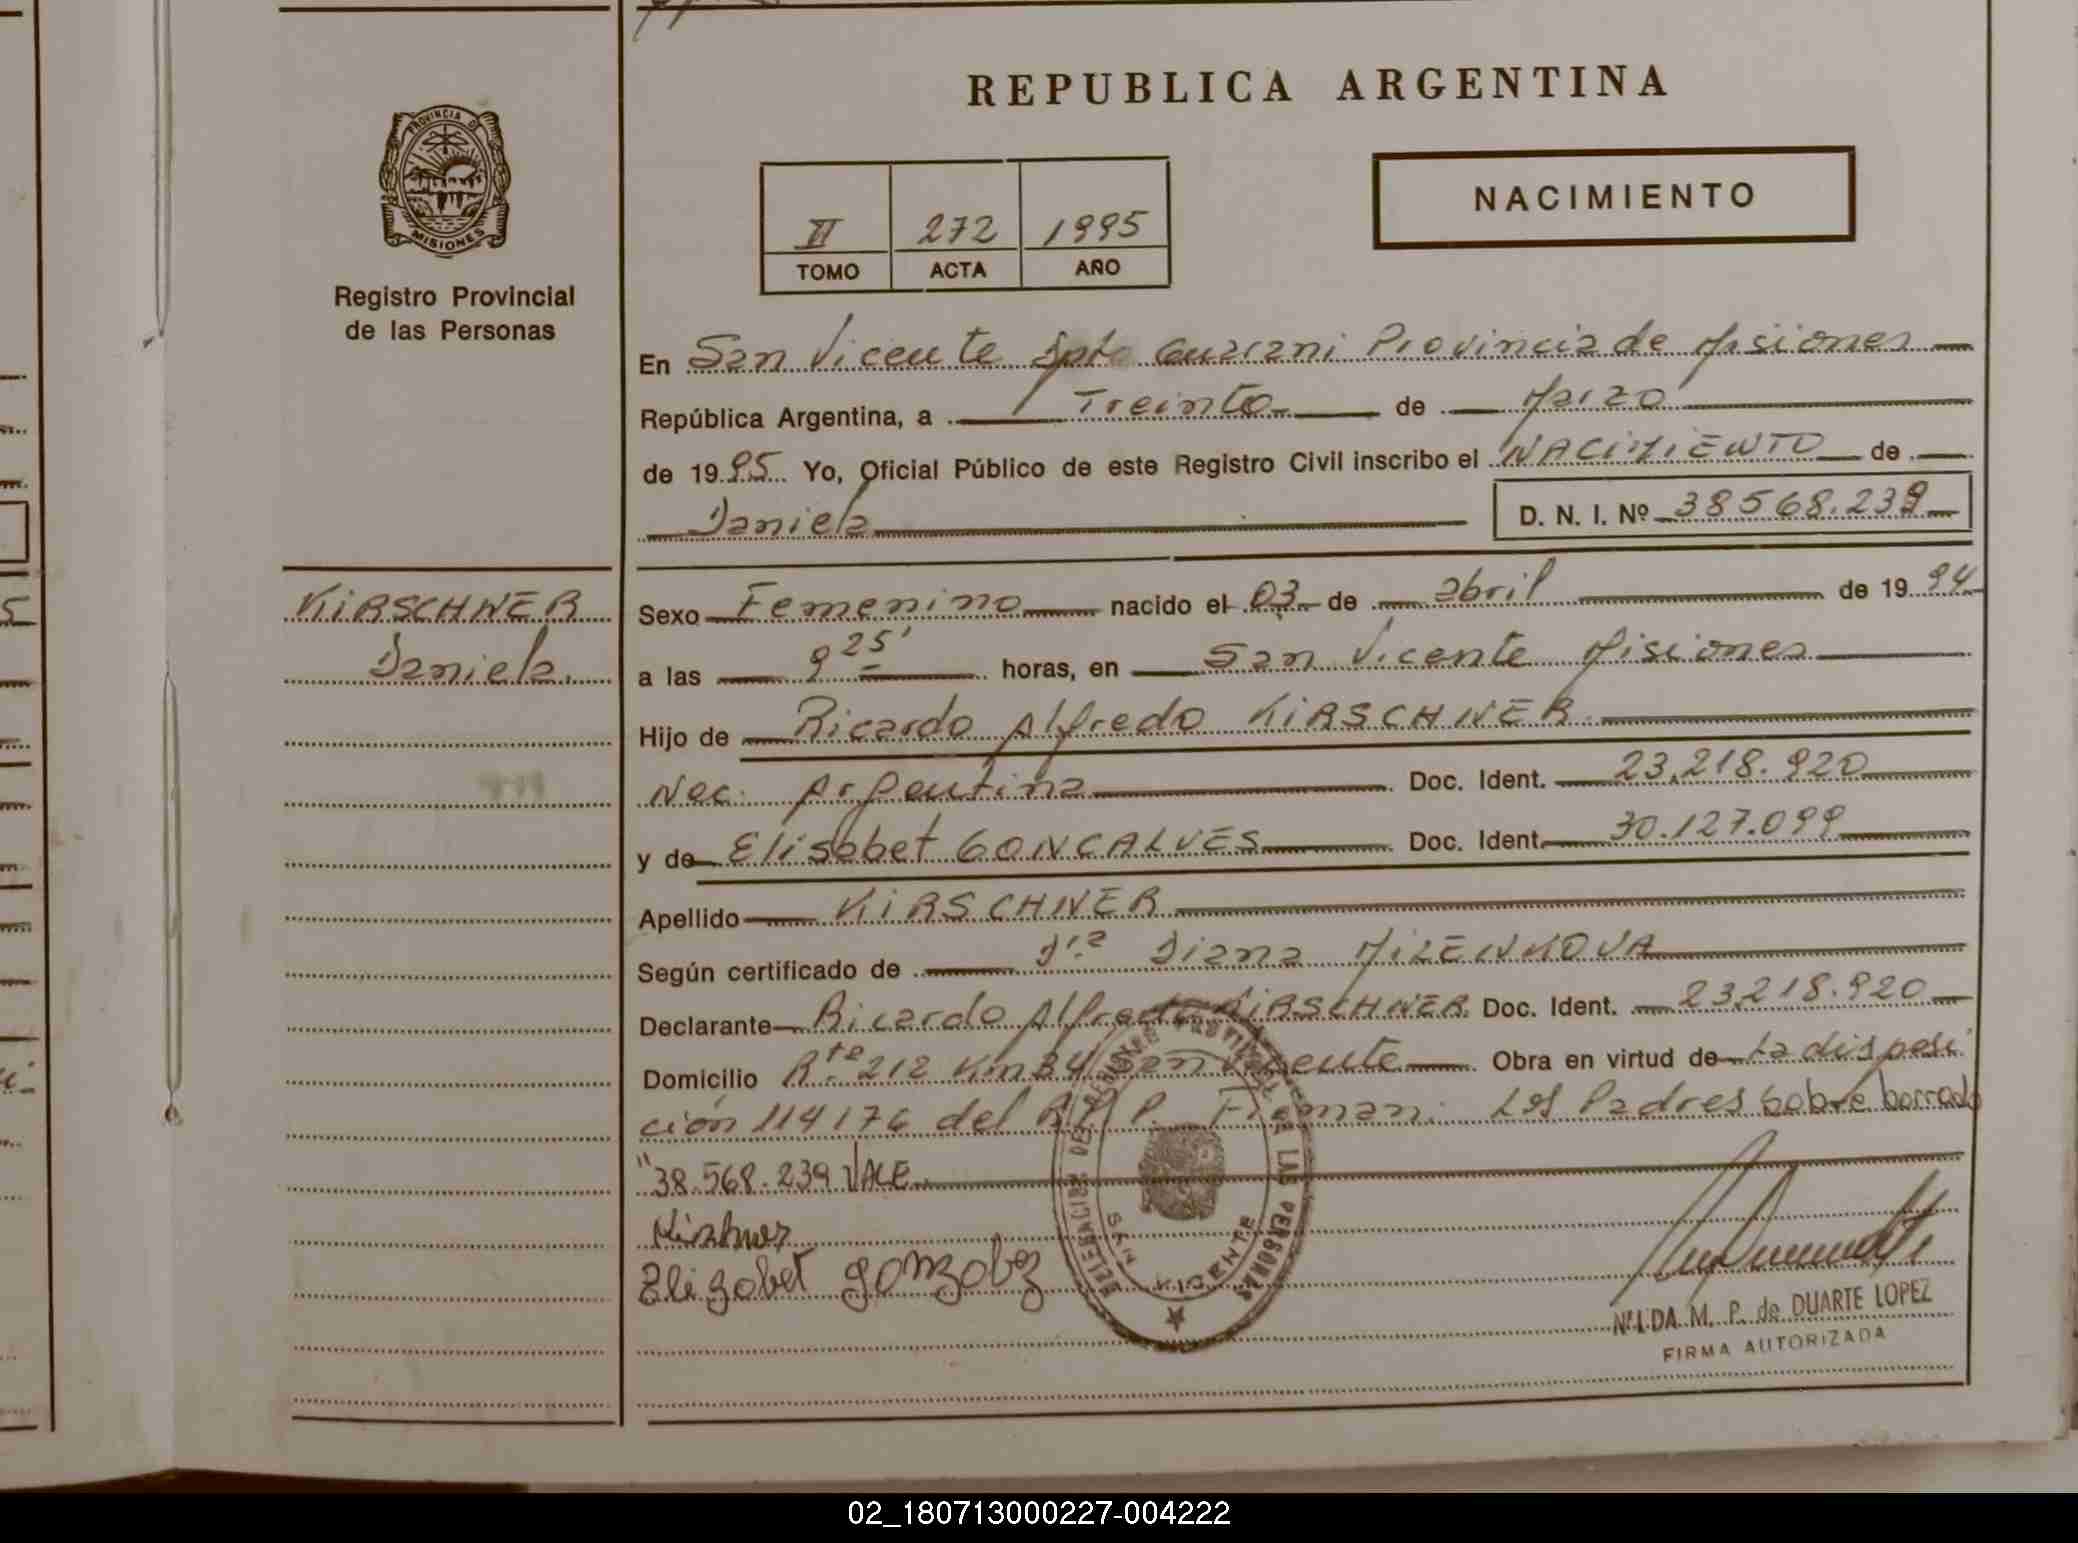 REPUBLICA ARGENTINA
PROVINCIA DE
MISIONES
Registro Provincial
de las Personas
II 272 1995
TOMO ACTA AÑO
NACIMIENTO
En San Vicente Dpto Guarani Provincia de Misiones
República Argentina, a Treinta de Marzo
de 1995 Yo, Oficial Público de este Registro Civil inscribo el NACIMIENTO de
Daniela D. N. I. Nº 38568.239
KIRSCHNER
Daniela.
Sexo Femenino nacido el 03 de abril de 1994
a las 9 25' horas, en San Vicente Misiones
Hijo de Ricardo Alfredo KIRSCHNER
Nac. Argentina Doc. Ident. 23.218.920
y de Elisabet GONCALVES Doc. Ident. 30.127.099
Apellido KIRSCHNER
Según certificado de Dra Diana MILENKOVA
Declarante Ricardo Alfredo KIRSCHNER. Doc. Ident. 23218.920
Domicilio Rta 212 Km 34 San Vicente Obra en virtud de La disposi
ción 114176 del R.P.P. Firman: Los Padres Sobre borrado
"38.568.239 VALE.
Elizabet gonzalez
DELEGACION DEL REGISTRO PROVINCIAL DE LAS PERSONAS
SAN VICENTE
NELIDA M. P. de DUARTE LOPEZ
FIRMA AUTORIZADA
02_180713000227-004222